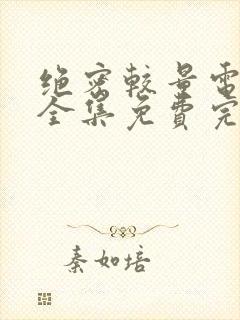 绝密较量電
全集免費完
秦如培